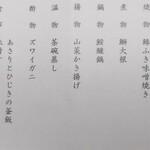 焼物 鰆ふき味噌焼き
煮物 鰤大根
鍋物 鮟鱇鍋
揚物 山菜かき揚げ
温物 茶碗蒸し
酢物 ズワイガニ
食事 あさりとひじきの釜飯